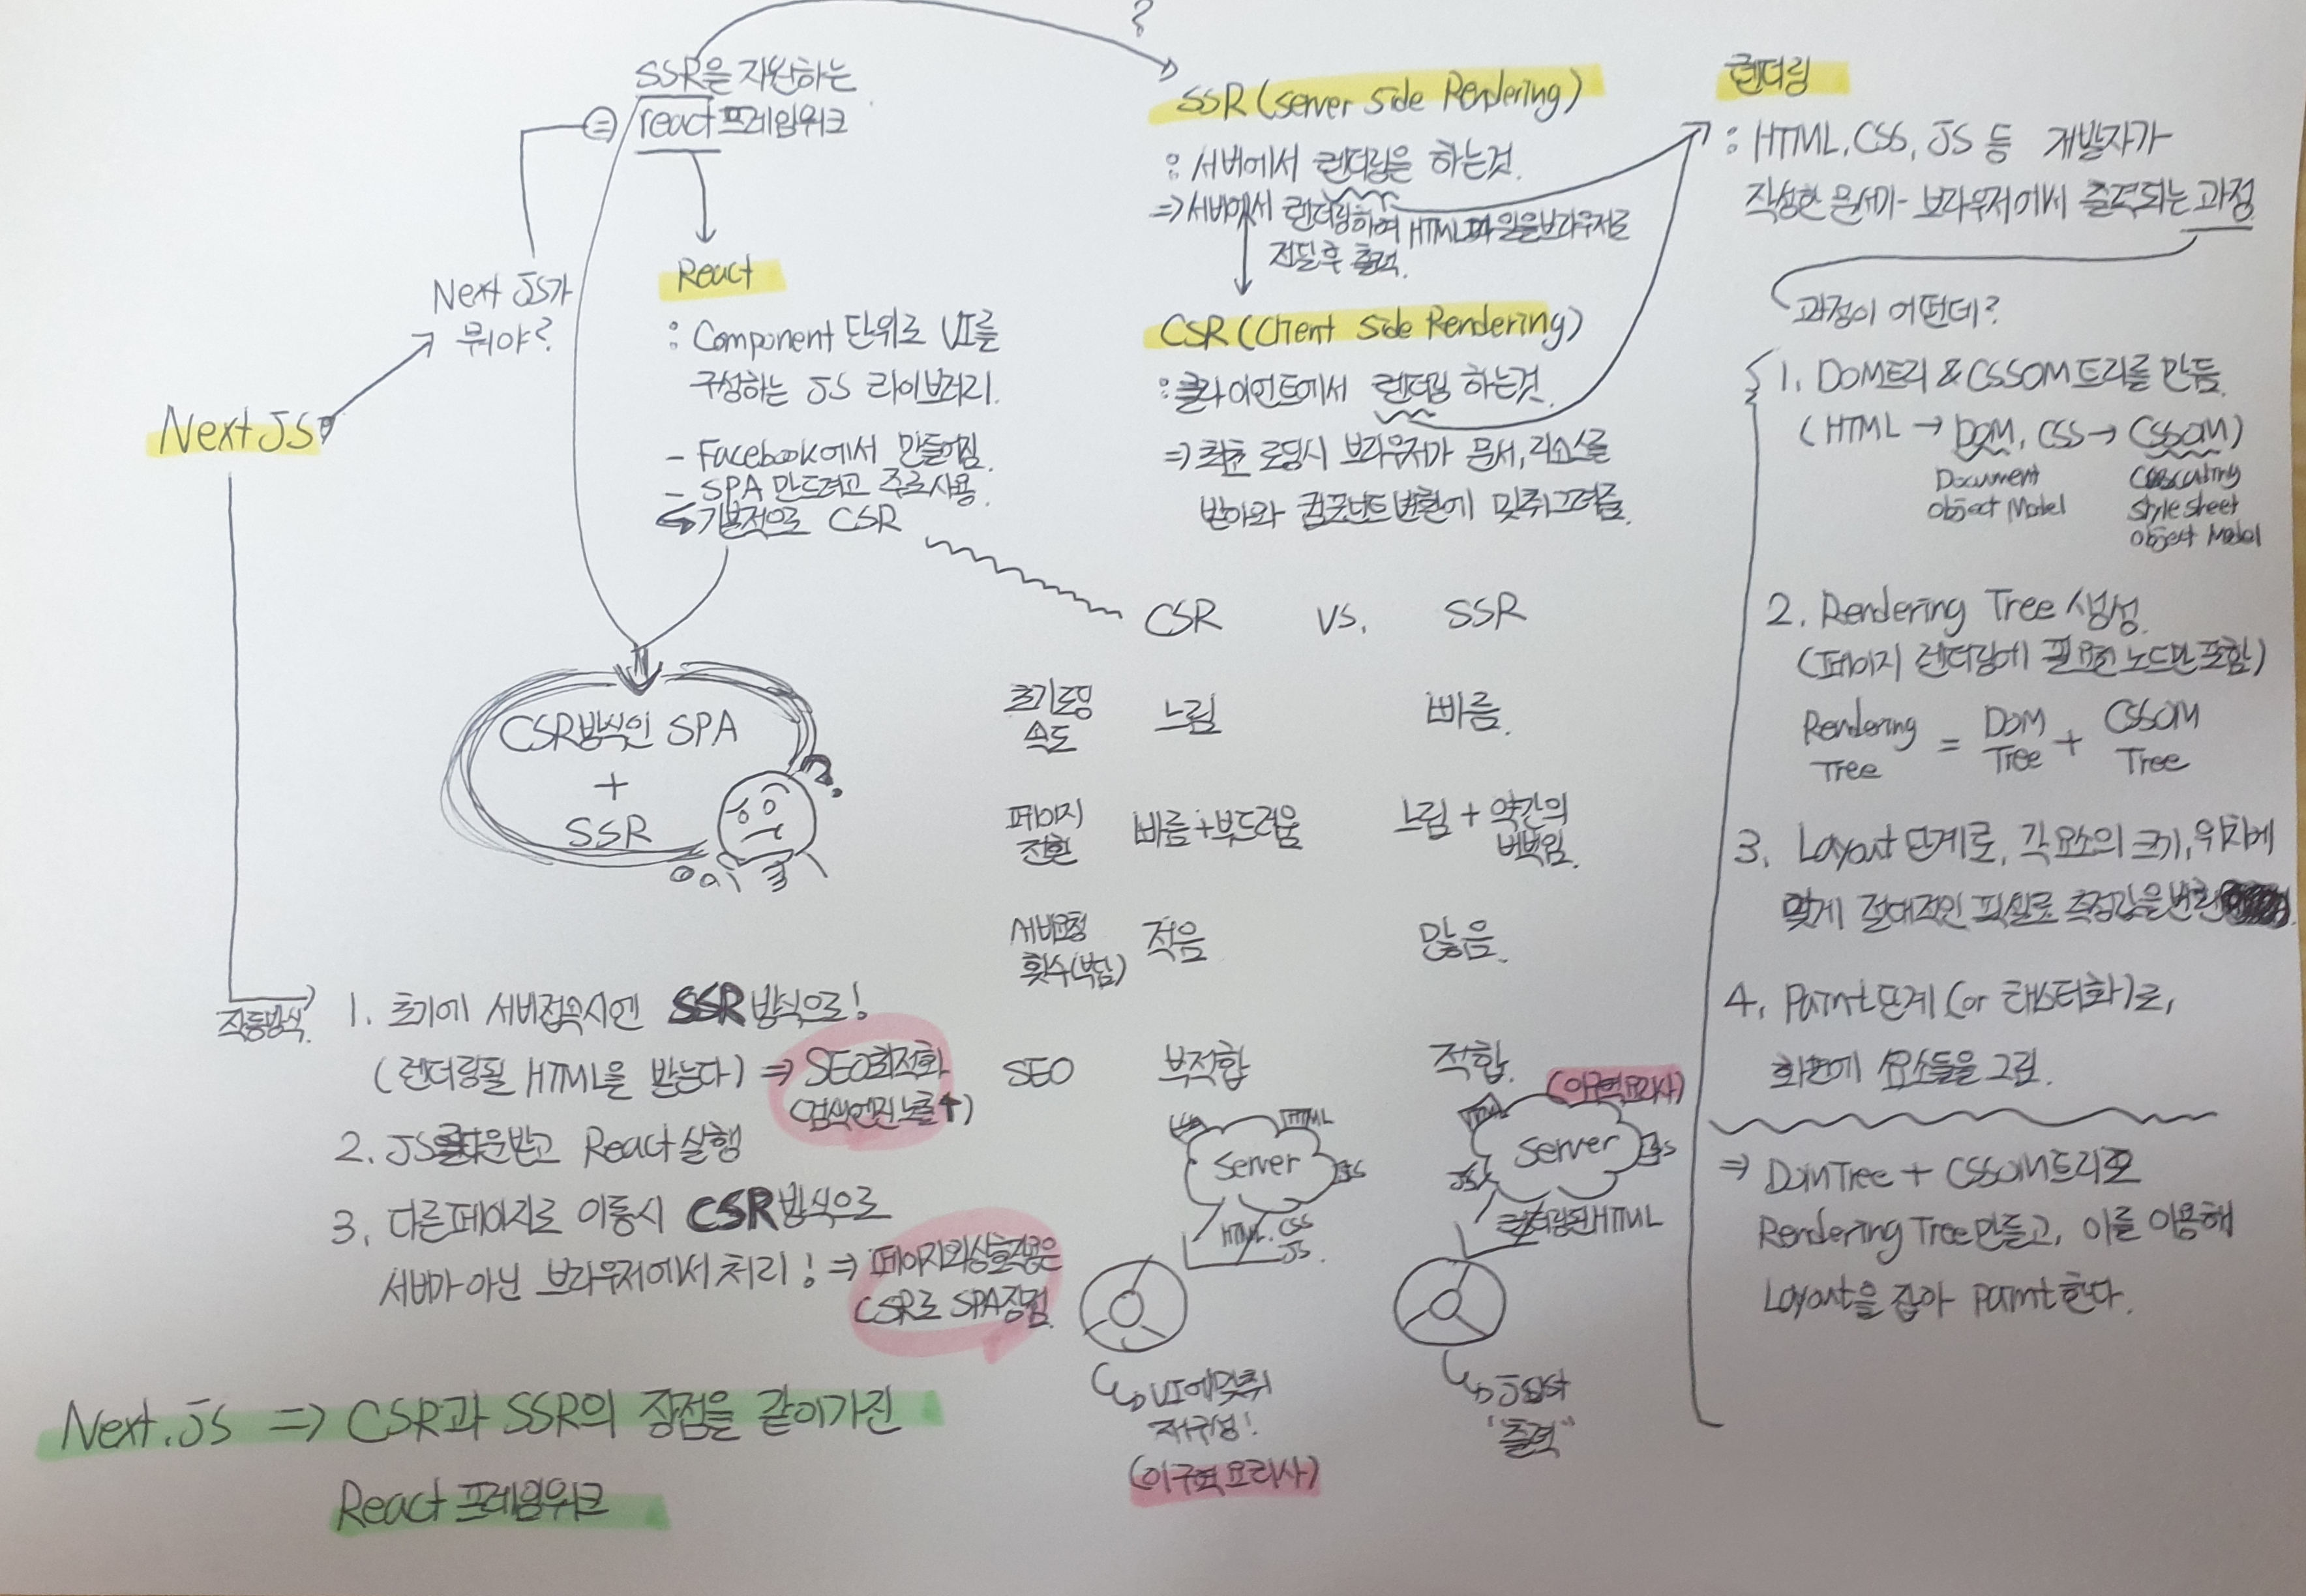 Next JS
Next JS가
뭐야?
SSR을 지원하는
react 프레임워크
React
: Component 단위로 UI를
구성하는 JS 라이브러리.
- Facebook에서 만들어짐.
- SPA 만드려고 주로사용.
기본적으로 CSR
CSR방식인 SPA
+
SSR
?
SSR (Server Side Rendering)
: 서버에서 렌더링을 하는것.
⇒ 서버에서 렌더링하여 HTML파일을 브라우저로
전달 후 출력.
CSR (Client Side Rendering)
: 클라이언트에서 렌더링 하는것.
⇒ 최초 로딩시 브라우저가 문서, 리소스를
받아와 컴포넌트 변환에 맞춰 그려줌.
CSR vs. SSR
초기로딩
속도
느림 빠름.
페이지
전환
빠름+부드러움
느림 + 약간의
버벅임.
서버요청
횟수(부담)
적음 많음.
SEO 부적합 적합.
(이구역요리사)
HTML
Server
JS
HTML. CSS
JS.
UI에맞춰
재구성!
(이구역 요리사)
Server
JS
렌더링된HTML
Just
"출력"
렌더링
: HTML, CSS, JS 등 개발자가
작성한 문서가 브라우저에서 출력되는 과정
과정이 어떤데?
1. DOM트리 & CSSOM트리를 만듦.
( HTML → DOM, CSS → CSSOM)
Document
object Model
Cascading
style sheet
object Model
2. Rendering Tree 생성.
(페이지 렌더링에 필요한 노드만 포함)
Rendering Tree = DOM Tree + CSSOM Tree
3. Layout 단계로, 각 요소의 크기, 위치에
맞게 절대적인 픽셀로 측정값을 변환
4. Paint단계 (or 래스터화)로,
화면에 요소들을 그림.
⇒ DOM Tree + CSSOM트리로
Rendering Tree만들고, 이를 이용해
Layout을 잡아 paint한다.
작동방식.
1. 초기에 서버접속시엔 SSR방식으로!
(렌더링될 HTML을 받는다) ⇒ SEO최적화
(검색엔진 노출↑)
2. JS를다운받고 React 실행
3. 다른페이지로 이동시 CSR방식으로
서버가 아닌 브라우저에서 처리! ⇒ 페이지와상호작용은
CSR로 SPA장점.
Next.js ⇒ CSR과 SSR의 장점을 같이가진
React 프레임워크